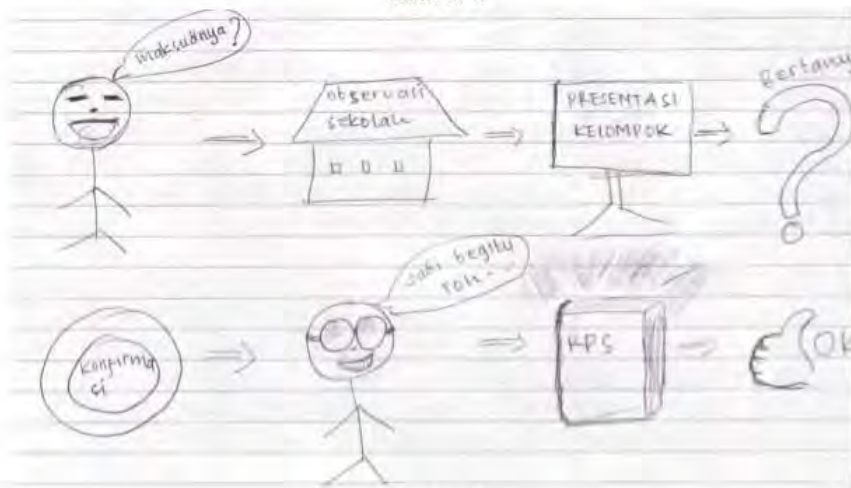 maksudnya?
observasi
sekolah
PRESENTASI
KELOMPOK
Bertanya
konfirma
si
jadi begitu
toh...
RPS
OK